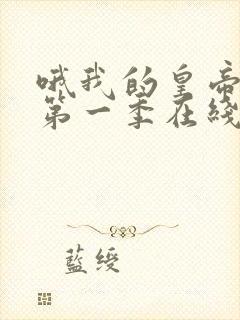 哦我的皇帝
第一季在綫
藍綬